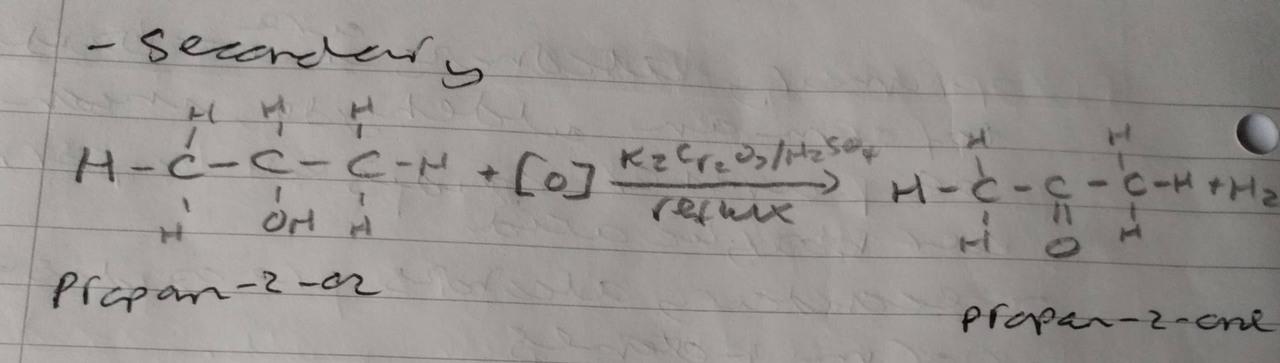 - Secondary
H H H
H - C - C - C - H + [O] K2Cr2O7/H2SO4 reflux H - C - C - C - H + H2
H OH H
H H
H O H
propan-2-ol
propan-2-one